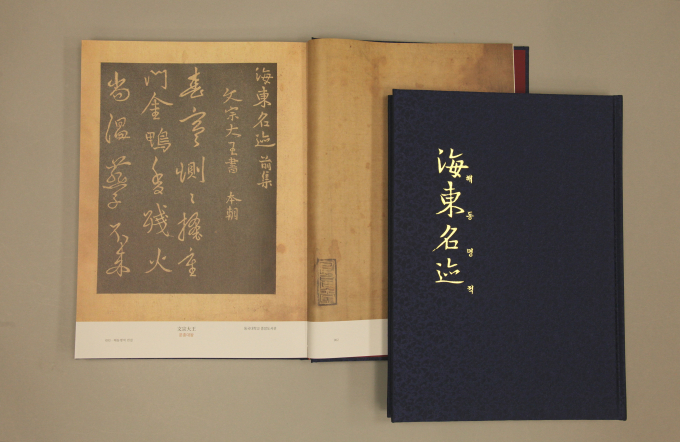 海東名迹 前集
文宗大王書 本朝
春寒惻〻掩重
門金鴨香殘火
尚溫燕子不來
海東名迹
해동명적